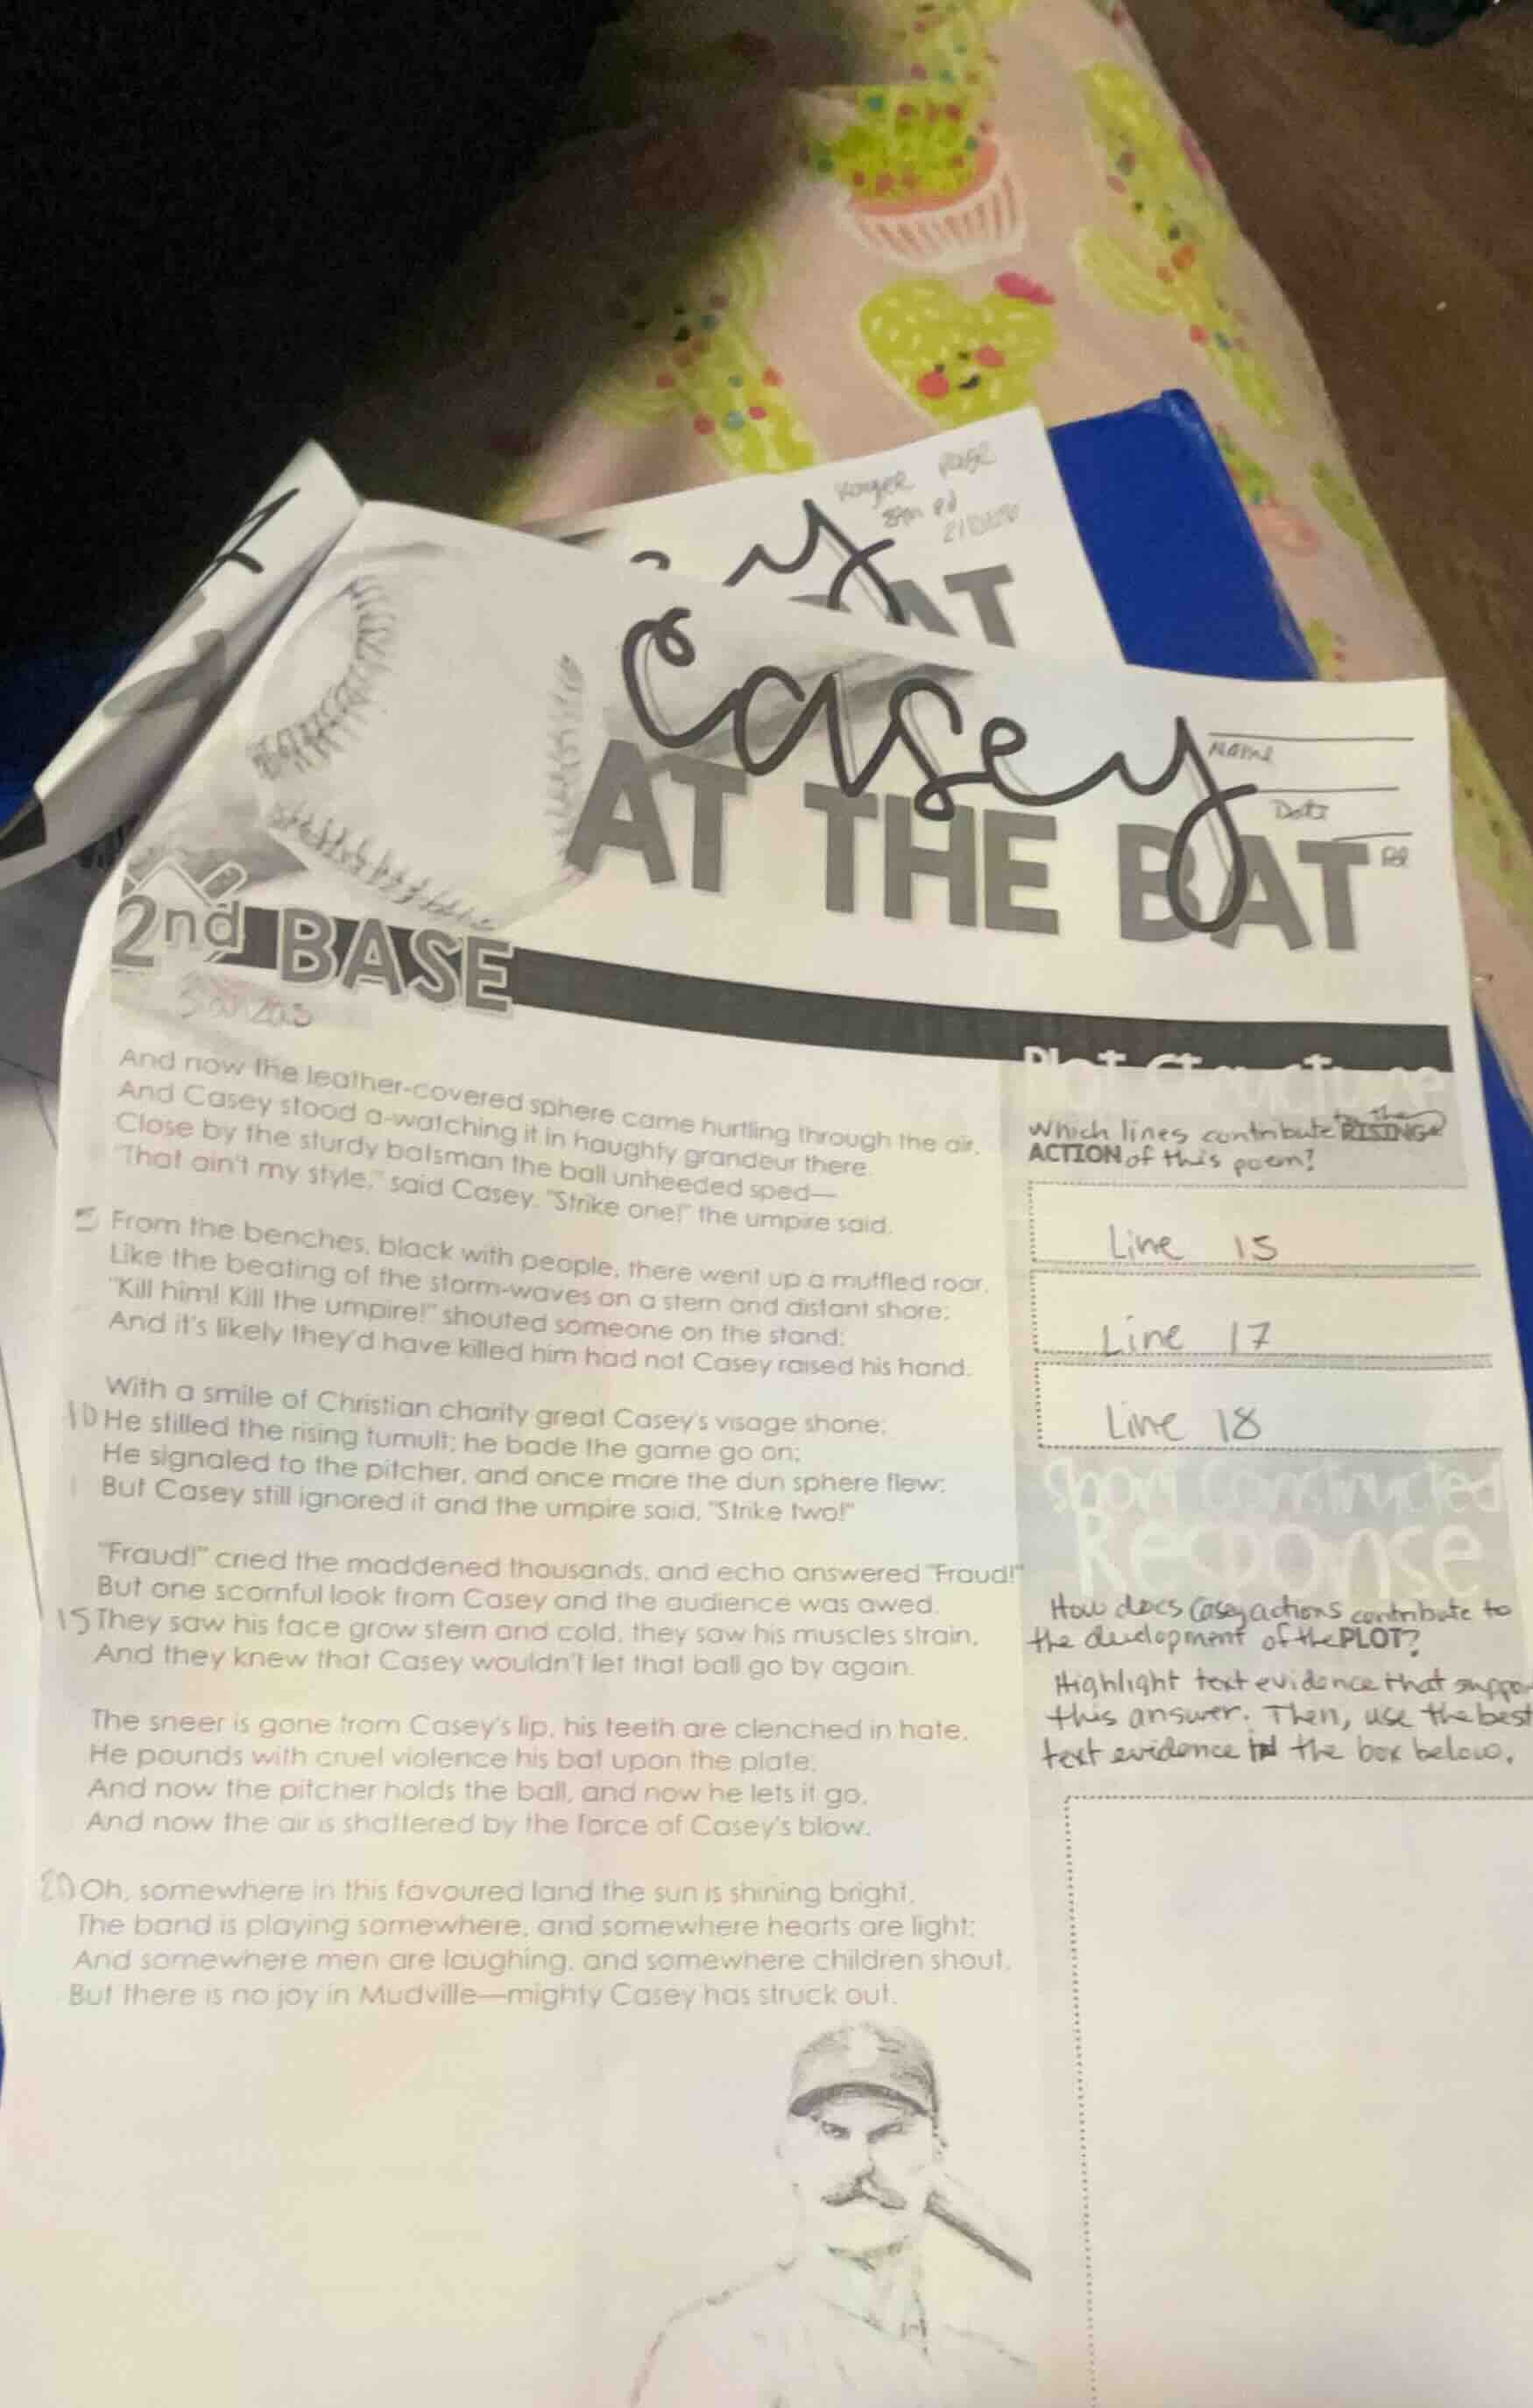 AT
Casey
AT THE BAT
Name
Date
Pd
2nd BASE
And now the leather-covered sphere came hurtling through the air,
And Casey stood a-watching it in haughty grandeur there.
Close by the sturdy batsman the ball unheeded sped—
"That ain't my style," said Casey. "Strike one!" the umpire said.
5 From the benches, black with people, there went up a muffled roar,
Like the beating of the storm-waves on a stern and distant shore;
"Kill him! Kill the umpire!" shouted someone on the stand;
And it's likely they'd have killed him had not Casey raised his hand.
With a smile of Christian charity great Casey's visage shone;
10 He stilled the rising tumult; he bade the game go on;
He signaled to the pitcher, and once more the dun sphere flew;
But Casey still ignored it and the umpire said, "Strike two!"
"Fraud!" cried the maddened thousands, and echo answered "Fraud!"
But one scornful look from Casey and the audience was awed.
15 They saw his face grow stern and cold, they saw his muscles strain,
And they knew that Casey wouldn't let that ball go by again.
The sneer is gone from Casey's lip, his teeth are clenched in hate,
He pounds with cruel violence his bat upon the plate;
And now the pitcher holds the ball, and now he lets it go,
And now the air is shattered by the force of Casey's blow.
20 Oh, somewhere in this favoured land the sun is shining bright,
The band is playing somewhere, and somewhere hearts are light;
And somewhere men are laughing, and somewhere children shout,
But there is no joy in Mudville—mighty Casey has struck out.
Plot Structure
Which lines contribute to the RISING
ACTION of this poem?
Line 15
Line 17
Line 18
Short Constructed
Response
How does Casey actions contribute to
the development of the PLOT?
Highlight text evidence that suppor
this answer. Then, use the best
text evidence in the box below.